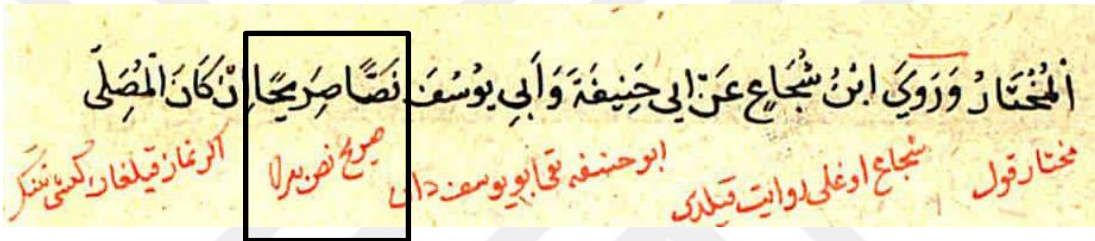 اَلْمُخْتَارُ وَرَوَيَ ابْنُ شُجَاعٍ عَنْ اَبِي حَنِيفَةَ وَاَبِي يُوسُفَ نَصًّا صَرِيحًا اِنْ كَانَ الْمُصَلِّى
مختار قول شجاع اوغلى روايت قيلدى ابو حنيفه تقى ابو يوسف دان صريح نص برلا اكر نماز قيلغان